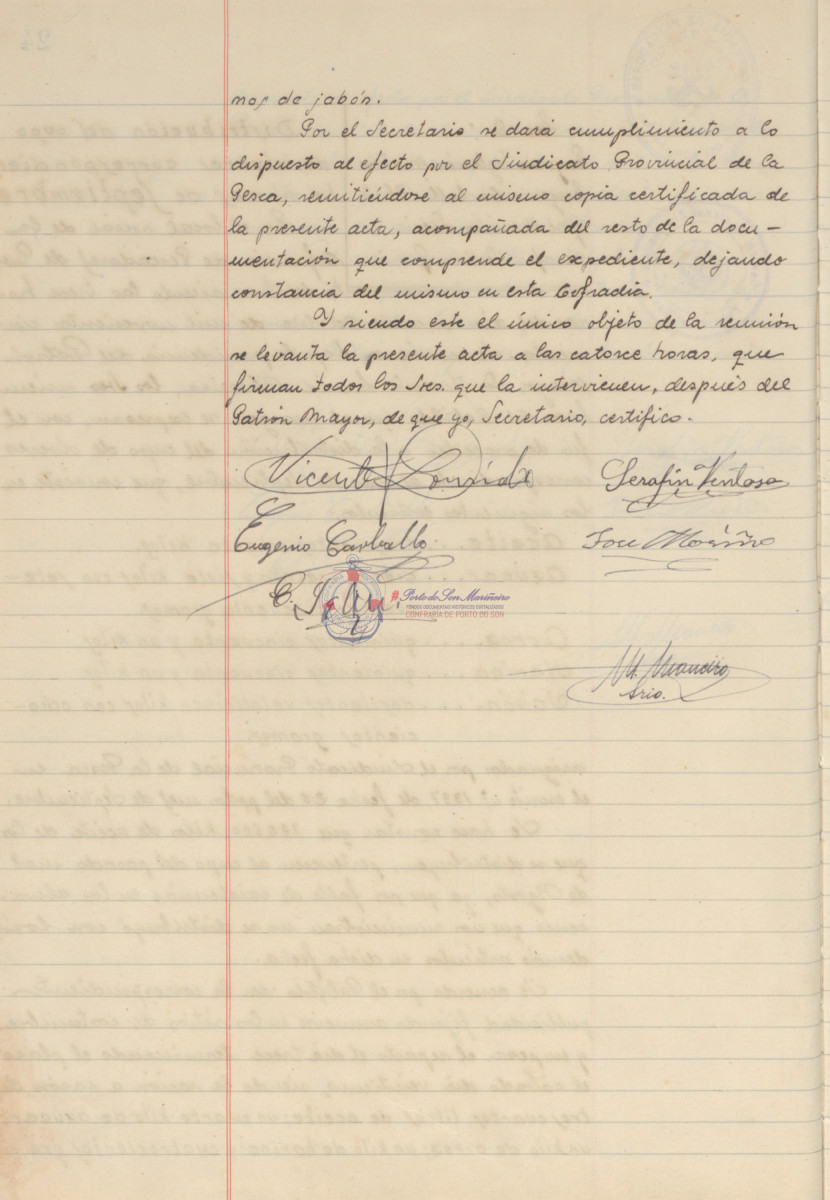 mos de jabón.
Por el Secretario se dará cumplimiento a lo
dispuesto al efecto por el Sindicato Provincial de la
Pesca, remitiéndose al mismo copia certificada de
la presente acta, acompañada del resto de la docu-
mentación que comprende el expediente, dejando
constancia del mismo en esta Cofradía.
Y siendo este el único objeto de la reunión
se levanta la presente acta a las catorce horas, que
firman todos los Sres. que la intervienen, después del
Patrón Mayor, de que yo, Secretario, certifico.
Vicente Serafín Ventosa
Eugenio Carballo Jose
C.
Porto do Son Mariñeiro
FONDOS DOCUMENTAIS HISTÓRICOS DIXITALIZADOS
CONFRARÍA DE PORTO DO SON
M.
Srio.